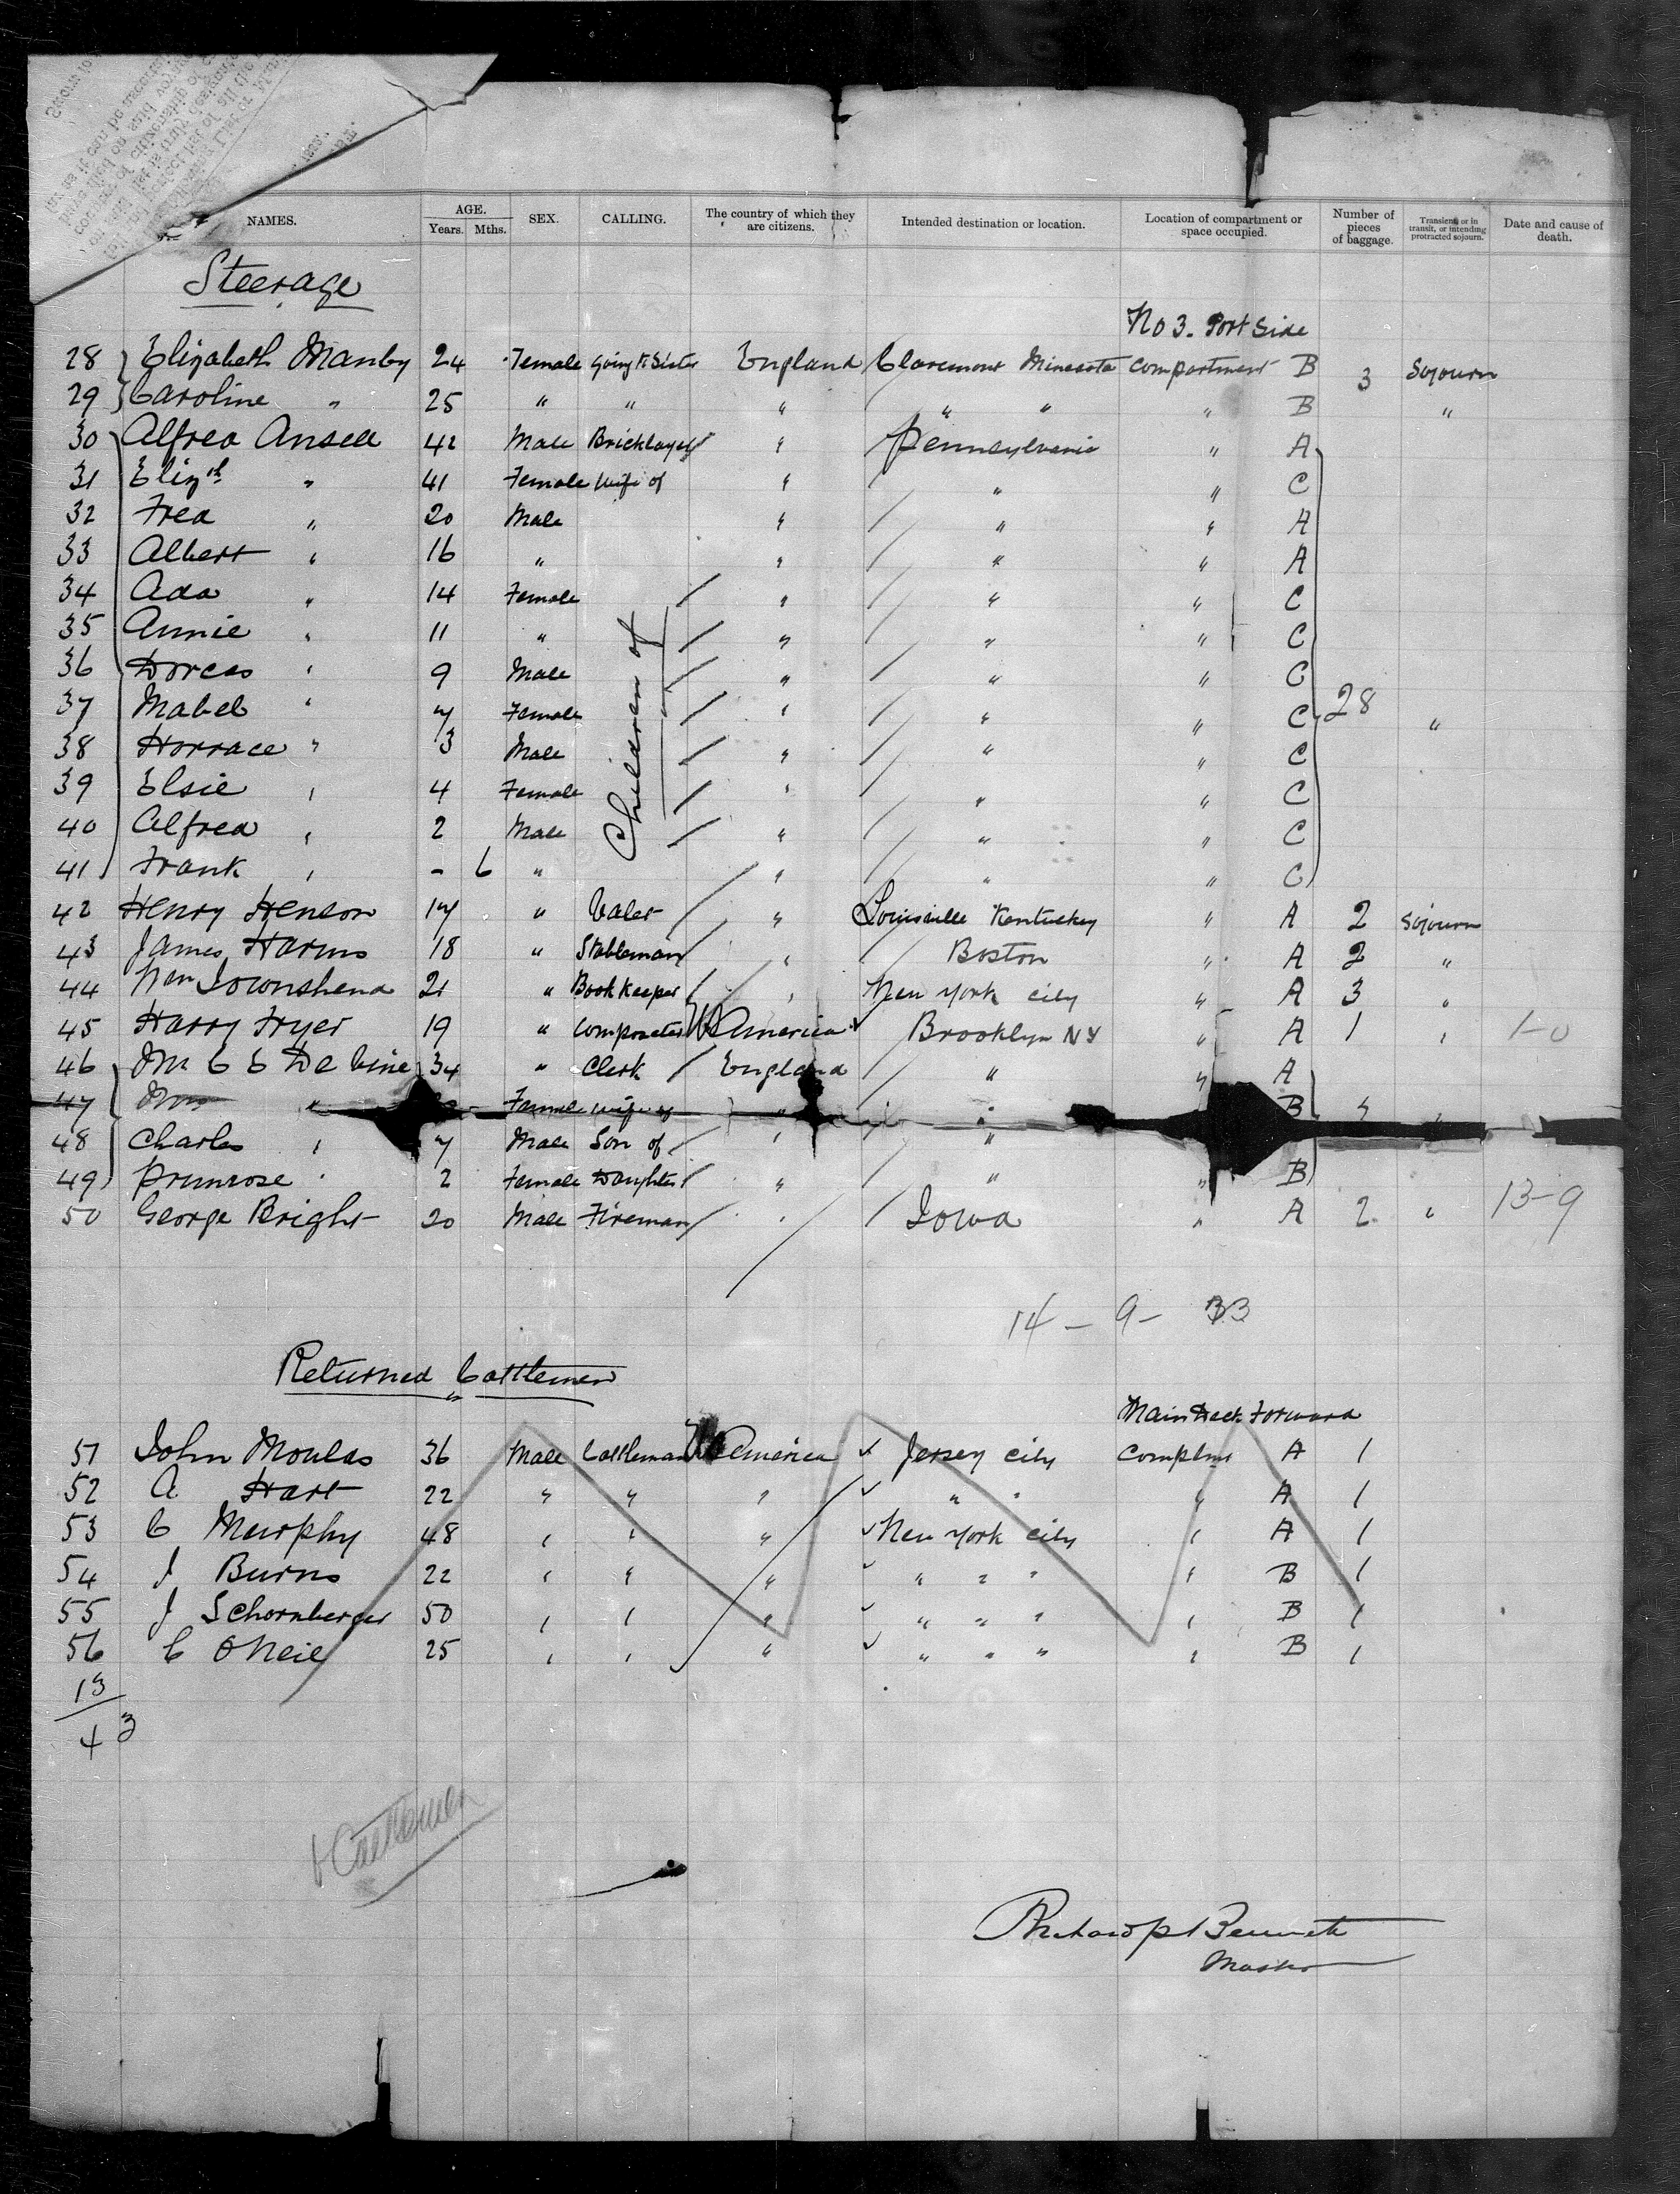 NAMES. AGE. Years. Mths. SEX. CALLING. The country of which they are citizens. Intended destination or location. Location of compartment or space occupied. Number of pieces of baggage. Transient, or in transit, or intending protracted sojourn. Date and cause of death.
Steerage
No 3. Port Side
28 Elizabeth Manby 24 Female Going to Sister England Claremont Minesota Compartment B 3 Sojourn
29 Caroline " 25 " " " " " " B "
30 Alfred Ansell 42 Male Bricklayer " Pennsylvania " A
31 Elizth " 41 Female Wife of " " " C
32 Fred " 20 Male " " " A
33 Albert " 16 " " " " A
34 Ada " 14 Female " " " C
35 Annie " 11 " " " " C
36 Dorcas " 9 Male " " " C
37 Mabel " 7 Female Children of " " " C 28 "
38 Horrace " 3 Male " " " C
39 Elsie " 4 Female " " " C
40 Alfred " 2 Male " " " C
41 Frank " - 6 " " " " C
42 Henry Henson 17 " Valet " Louisville Kentuckey " A 2 Sojourn
43 James Harms 18 " Stableman " Boston " A 2 "
44 Wm Townshend 21 " Book Keeper " New York City " A 3 "
45 Harry Fryer 19 " Compositer America Brooklyn NY " A 1 " 1-0
46 Mr C E De Vine 34 " Clerk England " " A
47 Mrs " Female Wife of " " B "
48 Charles " 7 Male Son of " "
49 Primrose " 2 Female Daughter " " " B
50 George Bright 20 Male Fireman " Iowa " A 2 " 13-9
14 - 9 - 33
Returned Cattlemen
Main Deck Forward
51 John Moulds 36 Male Cattleman America Jersey City Compmt A 1
52 A Hart 22 " " " " " " A 1
53 C Murphy 48 " " " New York City " A 1
54 J Burns 22 " " " " " " " B 1
55 J Schornberger 50 " " " " " " " B 1
56 C O Neil 25 " " " " " " " B 1
13
43
6 Cattlemen
Richard P Bennett
Master